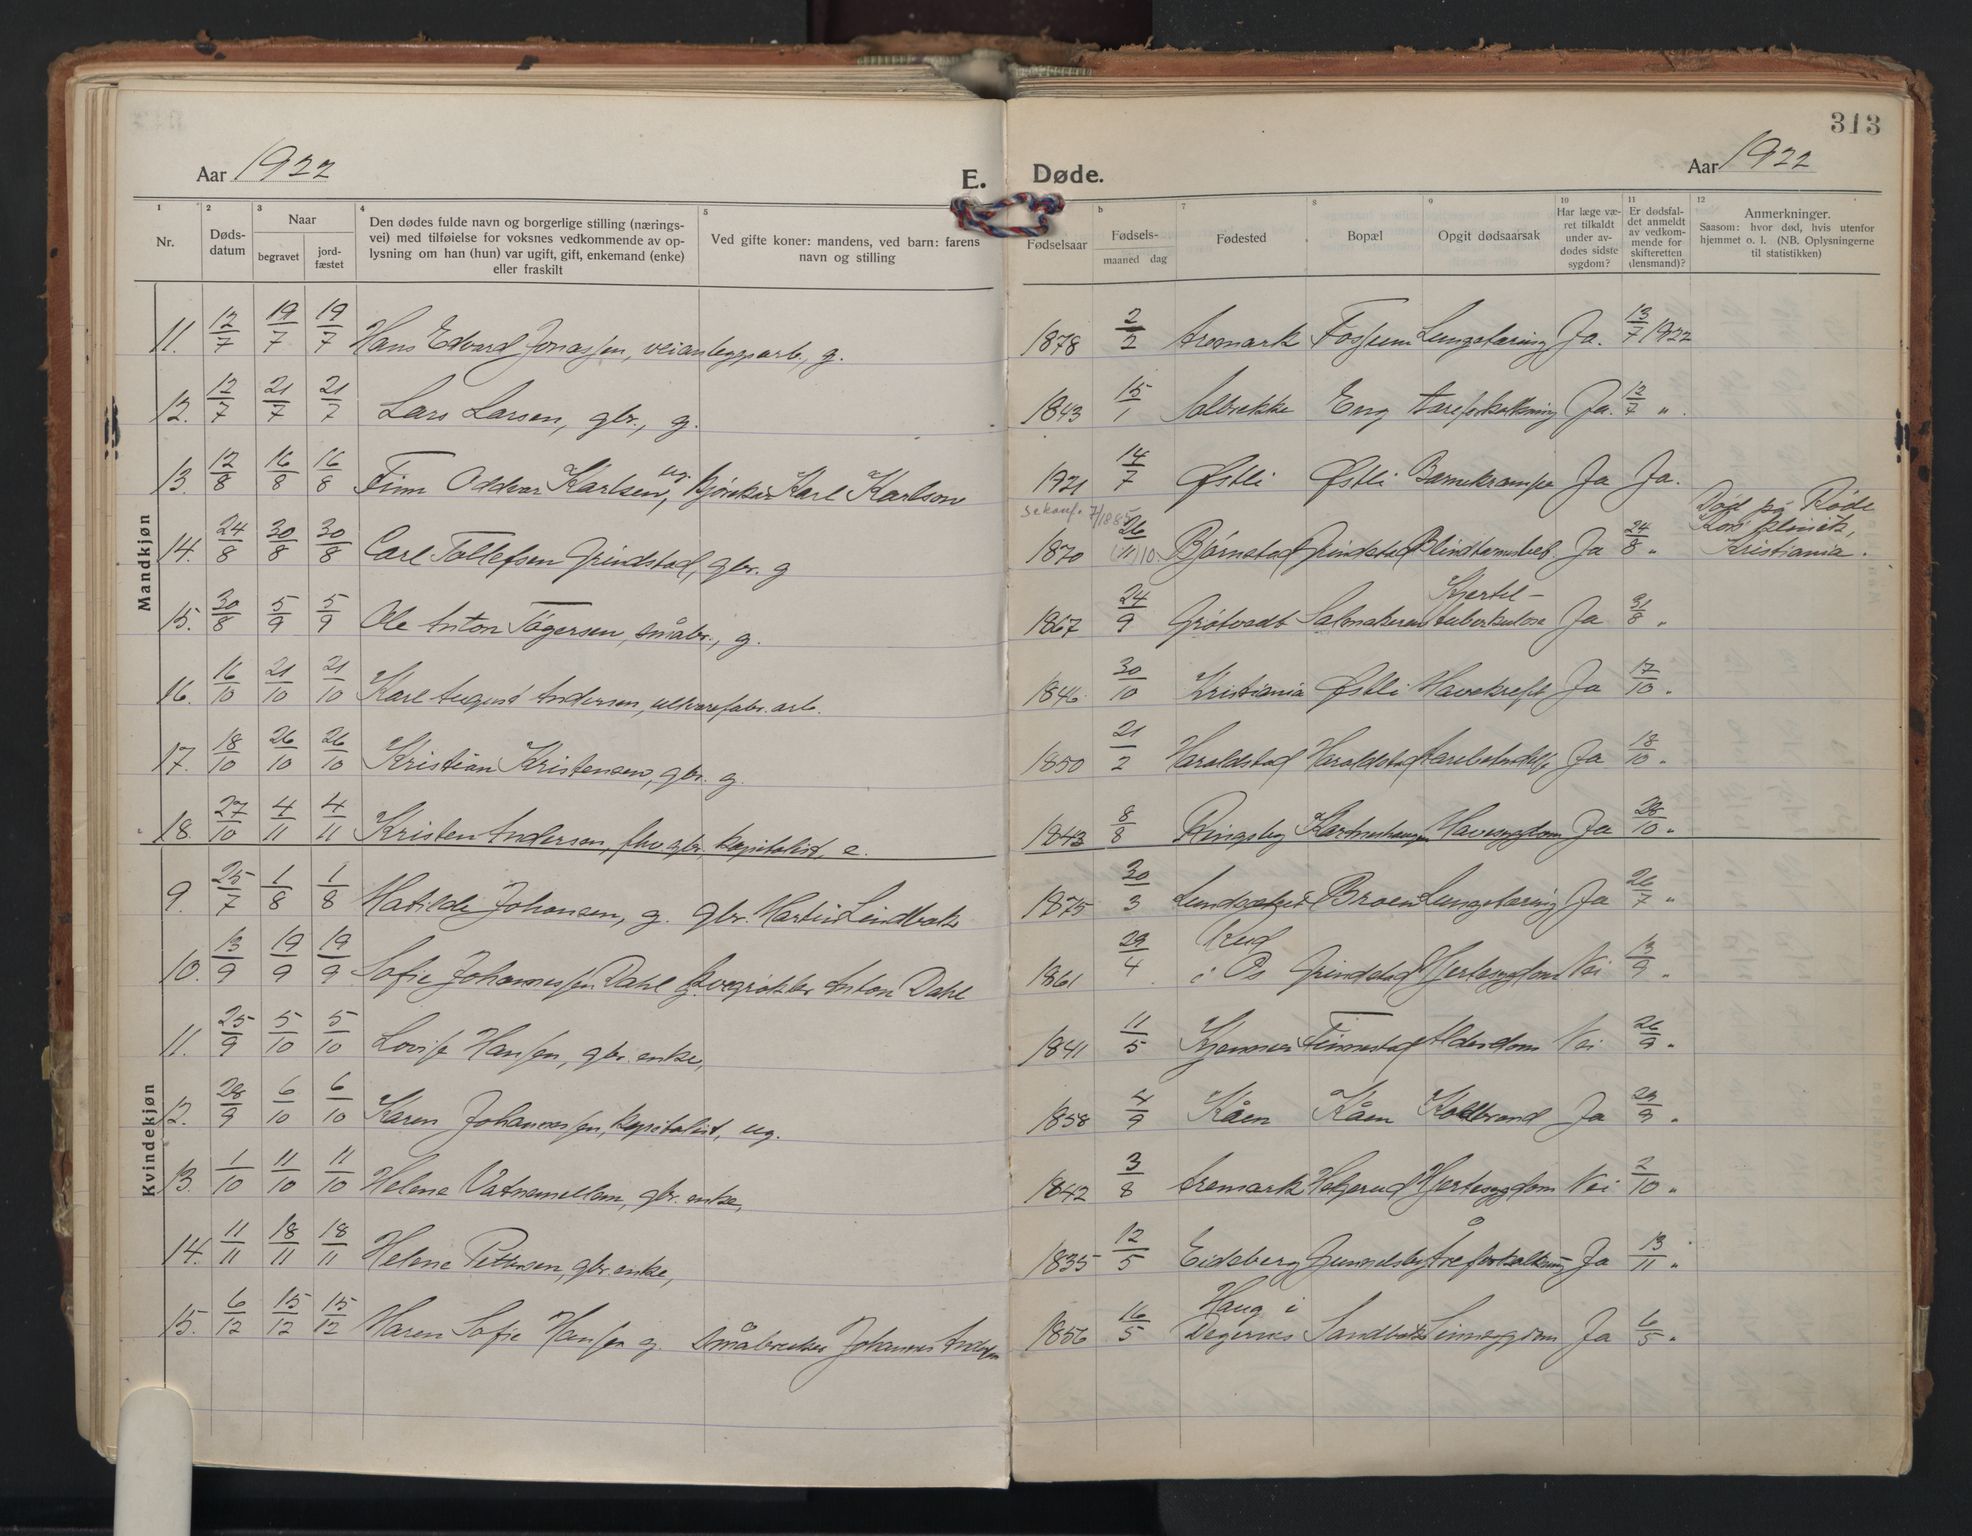 313
Aar 1922 E. Døde. Aar 1922
1 2 3 4 5 6 7 8 9 10 11 12
Nr. Døds-datum Naar begravet jord-fæstet Den dødes fulde navn og borgerlige stilling (nærings-vei) med tilføielse for voksnes vedkommende av op-lysning om han (hun) var ugift, gift, enkemand (enke) eller fraskilt Ved gifte koner: mandens, ved barn: farens navn og stilling Fødselsaar Fødsels-maaned dag Fødested Bopæl Opgit dødsaarsak Har læge væ-ret tilkaldt under av-dødes sidste sygdom? Er dødsfal-det anmeldt av vedkom-mende for skifteretten (lensmand)? Anmerkninger. Saasom: hvor død, hvis utenfor hjemmet o. l. (NB. Oplysningerne til statistikken)
Mandkjøn
11. 12/7 19/7 19/7 Hans Edvard Jonassen, veianlegpsarb., g. 1878 2/2 Aremark Fossum Lungetæring Ja. 13/7 1922
12. 12/7 21/7 21/7 Lars Larsen, gbr., g. 1843 15/1 Solbrekke Eng Aareforkalkning Ja. 12/7 "
13. 12/8 16/8 16/8 Finn Oddvar Karlsen, ug. Kjørekar Karl Karlson 1921 14/7 Østli Østli Barnekrampe Ja Ja.
se konf. 7/1885
14. 24/8 30/8 30/8 Carl Tollefsen Grindstad, gbr. g 1870 26/(11)10. Bjørnstad Grindstad Blindtarmsbet. Ja 24/8 " Død på Røde Kors klinik, Kristiania.
15. 30/8 5/9 5/9 Ole Anton Tøgersen, småbr., g. 1867 24/9 Grøtvedt Kjertel-tuberkulose Ja 31/8 "
16. 16/10 21/10 21/10 Karl August Andersen, ulvarefabr.arb. 1846 30/10 Kristiania Østli Mavekreft Ja 17/10 "
17. 18/10 26/10 26/10 Kristian Kristensen, gbr. g. 1850 21/2 Haraldstad Haraldstad Ja 18/10 "
18. 27/10 4/11 4/11 Kristen Andersen, fhv. gbr., kapitalist, e. 1843 8/8 Ringsby Mavesygdom Ja 28/10 "
Kvindekjøn
9. 25/7 1/8 1/8 Matilde Johansen, g. gbr. Martin Lindbak 1875 30/3 Broen Lungetæring Ja 26/7 "
10. 13/9 19/9 19/9 Sofie Johannessen Dahl g. Kvægrøkter Anton Dahl 1861 29/4 Rud i Os Grindstad Hjertesygdom Nei 13/9 "
11. 25/9 5/10 5/10 Lovise Hansen, gbr. enke, 1841 11/5 Finnestad Alderdom Nei 26/9 "
12. 28/9 6/10 6/10 Karen Johannessen, kapitalist, ug. 1858 4/9 Kåen Kåen Koldbrand Ja 29/9 "
13. 1/10 11/10 11/10 Helene Vatnemellom, gbr. enke, 1842 3/8 Aremark Helgerud Hjertesygdom Nei 2/10 "
14. 11/11 18/11 18/11 Helene Pettersen, gbr enke, 1835 12/5 Eidsberg Gunnelsby Åreforkalkning Ja 13/11 "
15. 6/12 15/12 15/12 Maren Sofie Hansen g. Småbruker Johannes Andersen 1856 16/5 Haug i Degernes Sandbæk Sinnsygdom Ja 6/5 "